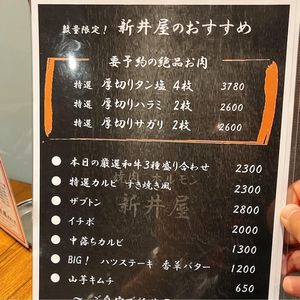 数量限定! 新井屋のおすすめ
要予約の絶品お肉
特選 厚切りタン塩 4枚 3780
特選 厚切りハラミ 2枚 2600
特選 厚切りサガリ 2枚 2600
● 本日の厳選和牛3種盛り合わせ 2300
● 特選カルビ すき焼き風 2300
● ザブトン 2800
● イチボ 2000
● 中落ちカルビ 1300
● BIG! ハツステーキ 香草バター 1200
● 山芋キムチ 650
焼肉 ホルモン
新井屋